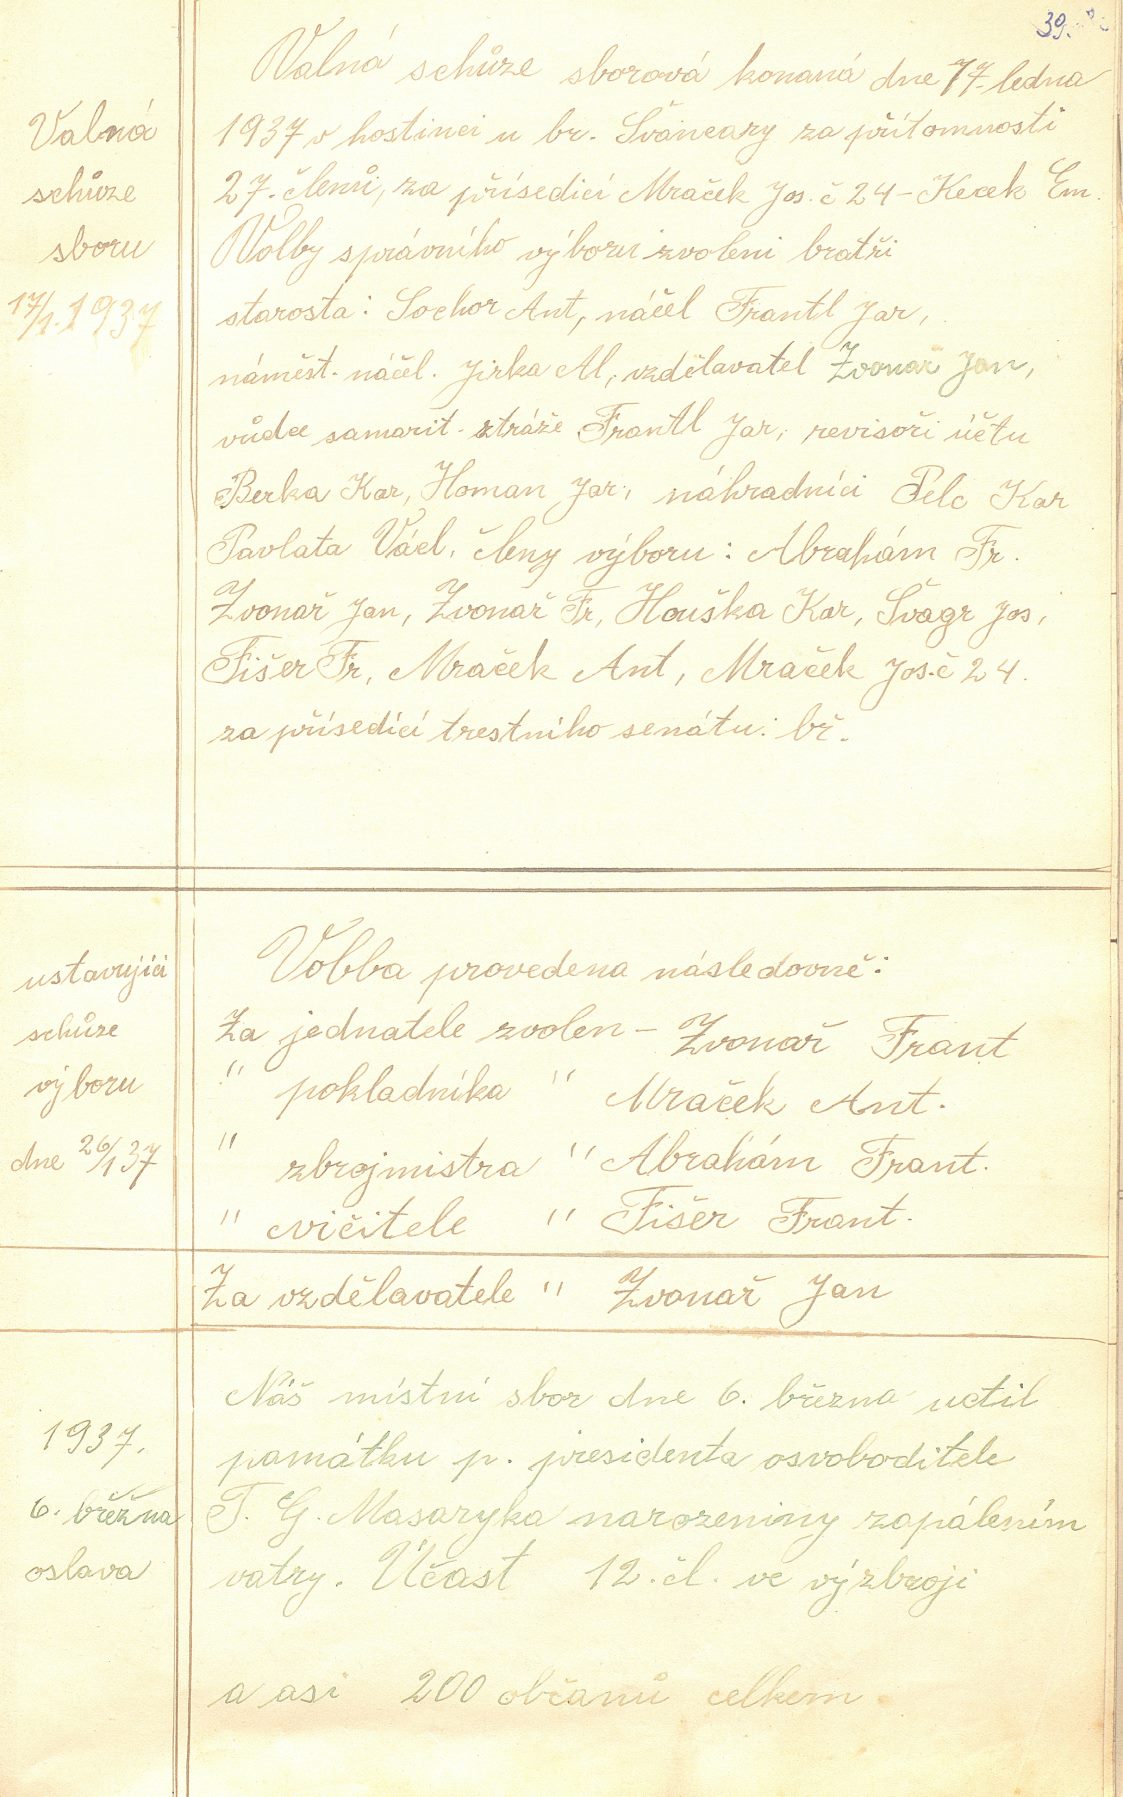 39.
Valná schůze sborová konaná dne 17. ledna
1937 v hostinci u br. Švancary za přítomnosti
27. členů, za přísedící Mraček Jos. č 24 – Kecek Em.
Volby správního výboru zvoleni bratři
starosta: Sochor Ant, náčel Frantl Jar,
náměst. náčel. Jirka Al, vzdělavatel Zvonař Jan,
vůdce samarit. stráže Frantl Jar, revisoři účtu
Berka Kar, Homan Jar, náhradníci Pelc Kar
Pavlata Václ, členy výboru: Abrahám Fr.
Zvonař Jan, Zvonař Fr, Houška Kar, Švagr Jos,
Fišer Fr, Mraček Ant, Mraček Jos. č 24.
za přísedící trestního senátu: bř.
Valná
schůze
sboru
17/1. 1937
Volba provedena následovně:
Za jednatele zvolen – Zvonař Frant
" pokladníka " Mraček Ant.
" zbrojmistra " Abrahám Frant.
" cvičitele " Fišer Frant.
Za vzdělavatele " Zvonař Jan
ustavující
schůze
výboru
dne 26/1 37
Náš místní sbor dne 6. března uctil
památku p. presidenta osvoboditele
T. G. Masaryka narozeniny zapálením
vatry. Účast 12. čl. ve výzbroji
a asi 200 občanů celkem.
1937.
6. března
oslava